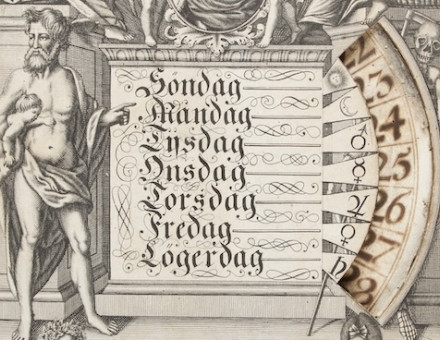 Söndag
Måndag
Tysdag
Onsdag
Torsdag
Fredag
Lögerdag
22
23
24
25
26
27
28